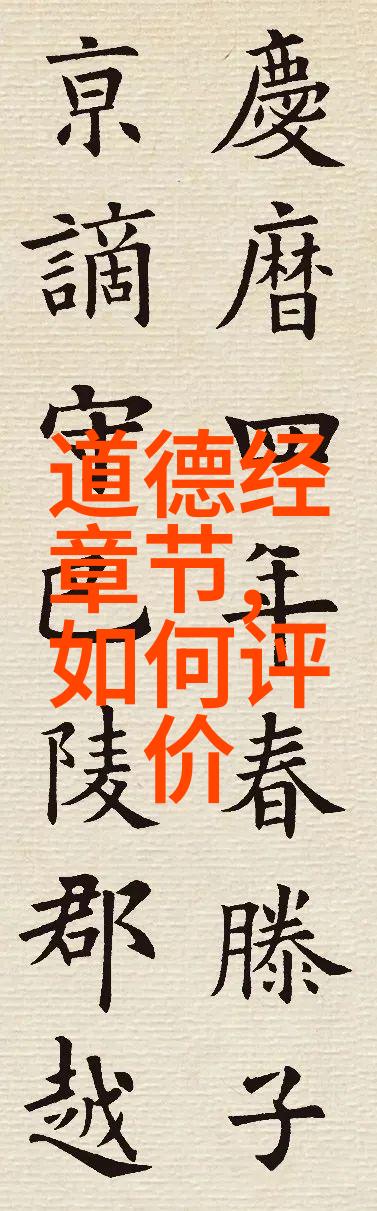 慶暦四年春滕子
亰謫守巴陵郡越
道德经
章节，
如何评
价